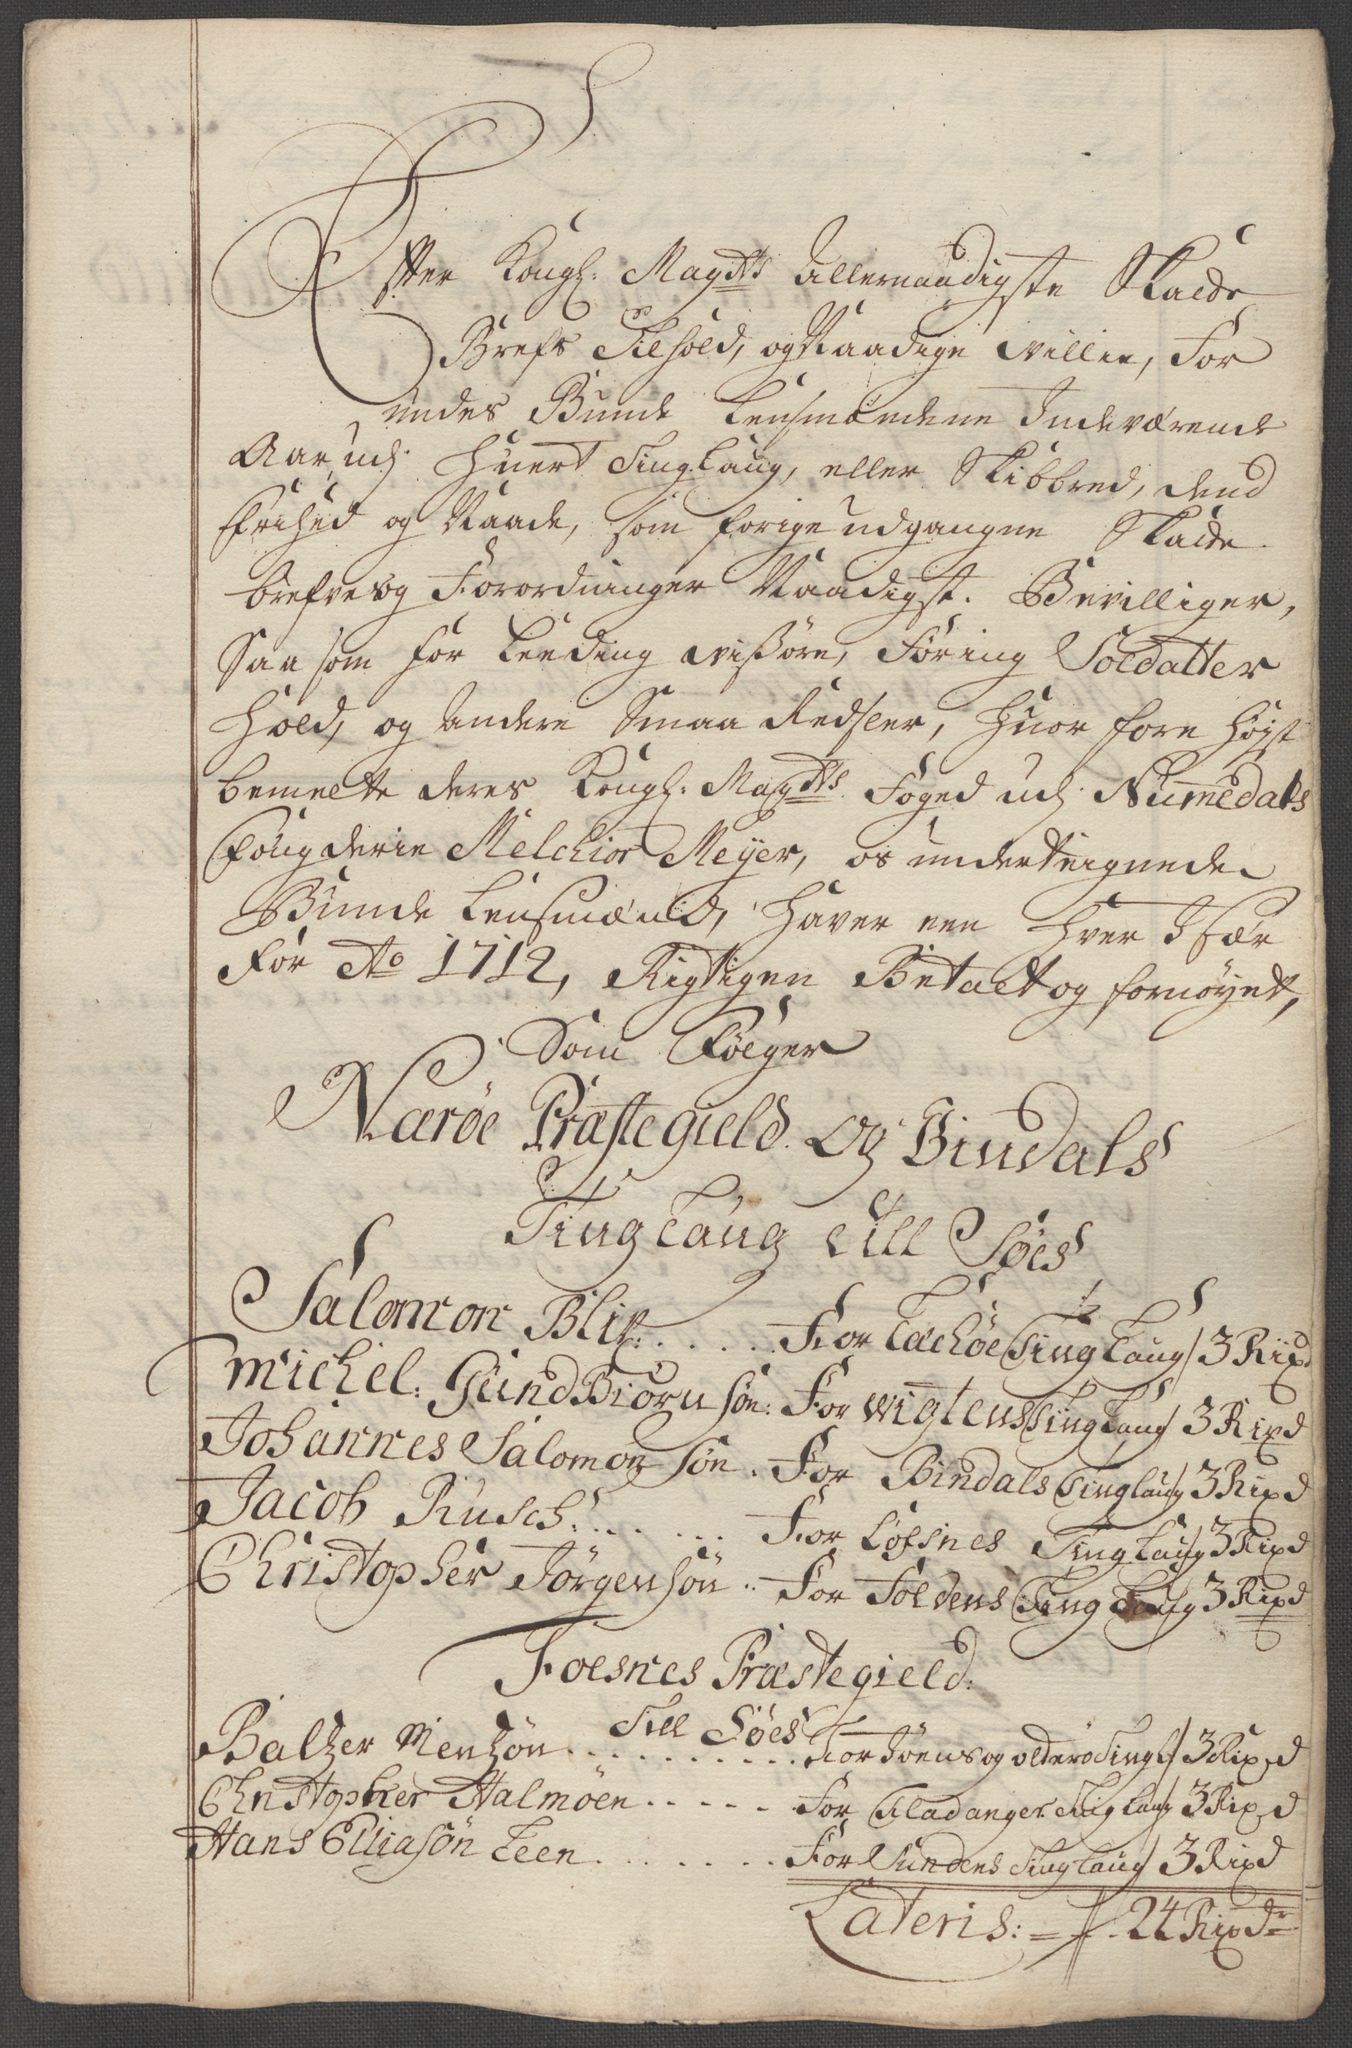 Efter Kongl: Maÿdts Allernaadigste Skatte
Brefs Tilhold, og Naadige Villie, For
undes Bunde Lensmændene Indeværende
Aar, udj Huert Tinglaug, eller Skibbred, dend
Frihed og Naade, som forige udgangne Skatte
brefve og Forordninger Naadigst. Bevilliger,
Saa som for Leeding Visøre, Föring Soldatter
Hold, og andre Smaa Redsler, Huor fore Høyst
bemelte deres Kongl: Maÿdts Foged udj Numedals
Fougderie Melchior Meÿer, os underteignede
Bunde Lensmænd, haver een hver Især
for Ao 1712, Rigtigen Betalt og fornøyet,
Som Følger
Nærøe Præstegield. Og Bindals
TingLaug till Søes
Salomon Blix: . . . . . For Lechöe TingLaug / 3 Rixd
Michel: GundBiørnsøn: For Wigtens TingLaug 3 Rixd
Johannes Salomonsøn . For Bindals TingLaug 3 Rixd
Jacob Rusch: . . . . . For Lofsnes TingLaug 3 Rixd
Christopher Jörgensøn .. For Foldens TingLaug 3 Rixd
Foesnes Præstegield:
Till Søes
Baltzer Nentzøn . . . . . . . For Jöens og otterö Tingl / 3 Rixd
Christopher Halmöen . . . . . For Fladanger TingLaug 3 Rixd
Hans Elliasøn Leen . . . . . . . For Sundens TingLaug / 3 Rixd
Lateris: = / . 24 Rixdr